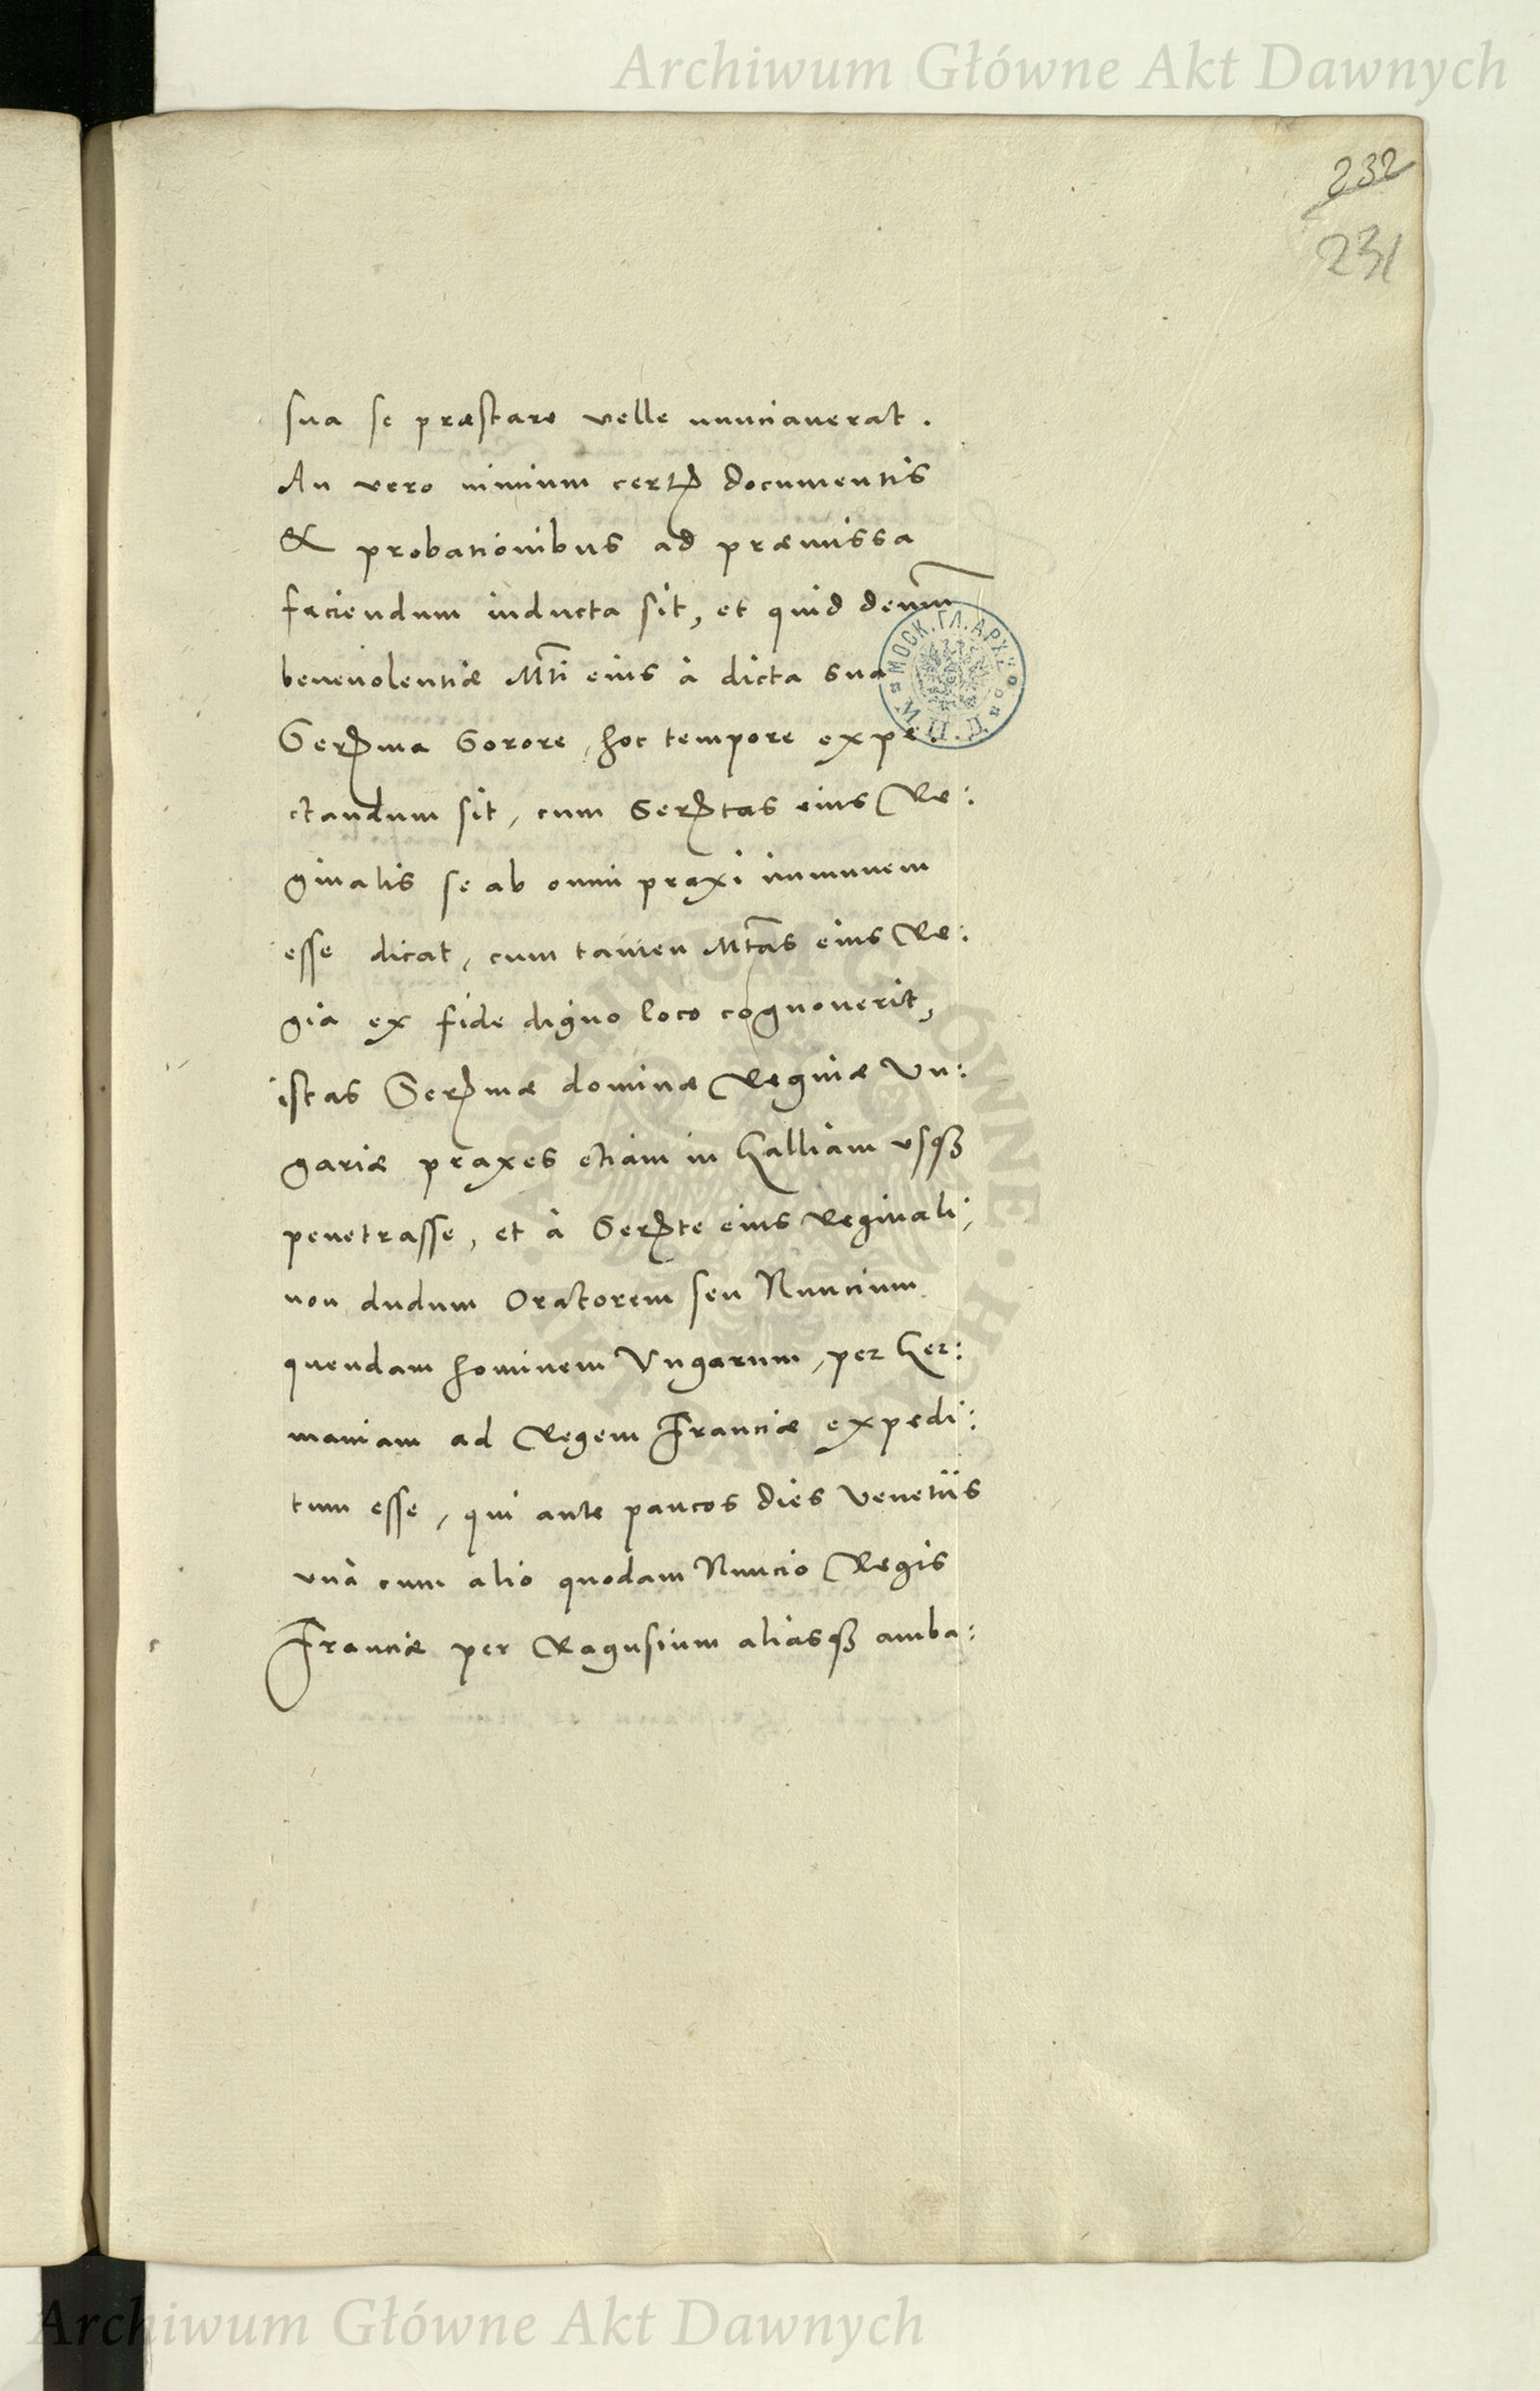 Archiwum Główne Akt Dawnych
232
231
sua se præstare velle nunciauerat.
An vero nimium certis documentis
& probationibus ad præmissa
faciendum inducta sit, et quid demum
beneuolentiæ Mti eius à dicta sua
Serma Sorore, hoc tempore expe:
ctandum sit, cum Sertas eius Re:
ginalis se ab omni praxi immunem
esse dicat, cum tamen Mtas eius Re:
gia ex fide digno loco cognouerit,
istas Sermæ dominæ Reginæ Vn:
gariæ praxes etiam in Galliam vsq3
penetrasse, et à Serte eius Reginali,
non dudum Oratorem seu Nuncium
quendam hominem Vngarum, per Ger:
maniam ad Regem Franciæ expedi:
tum esse, qui ante paucos dies Venetiis
vnà cum alio quodam Nuncio Regis
Franciæ per Ragusium aliasq3 amba:
МОСК. ГЛ. АРХ.
ARCHIWUM GŁÓWNE AKT DAWNYCH
Archiwum Główne Akt Dawnych